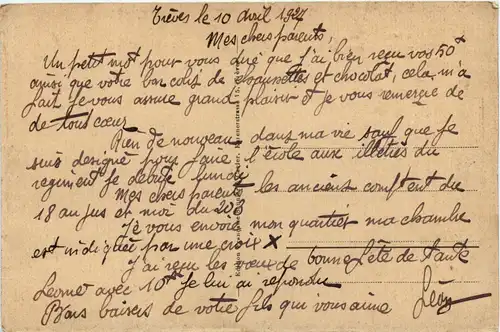 Trèves le 10 avril 1927
Mes chers parents,
Un petit mot pour vous dire que j'ai bien reçu vos 50f
ainsi que votre bon colis de chaussettes et chocolat, cela m'a
fait je vous assure grand plaisir et je vous remercie de
de tout cœur
Rien de nouveau dans ma vie sauf que je
suis designé pour faire l'école aux illétrés du
regiment je debute lundi
Mes chers parents les anciens comptent du
18 au jus et moi du 203
Je vous envoie mon quartier ma chambre
est indiquée par une croix X
J'ai reçu les vœux de bonne fête de tante
Leonie avec 10f je lui ai repondu
Bons baisers de votre fils qui vous aime Léon